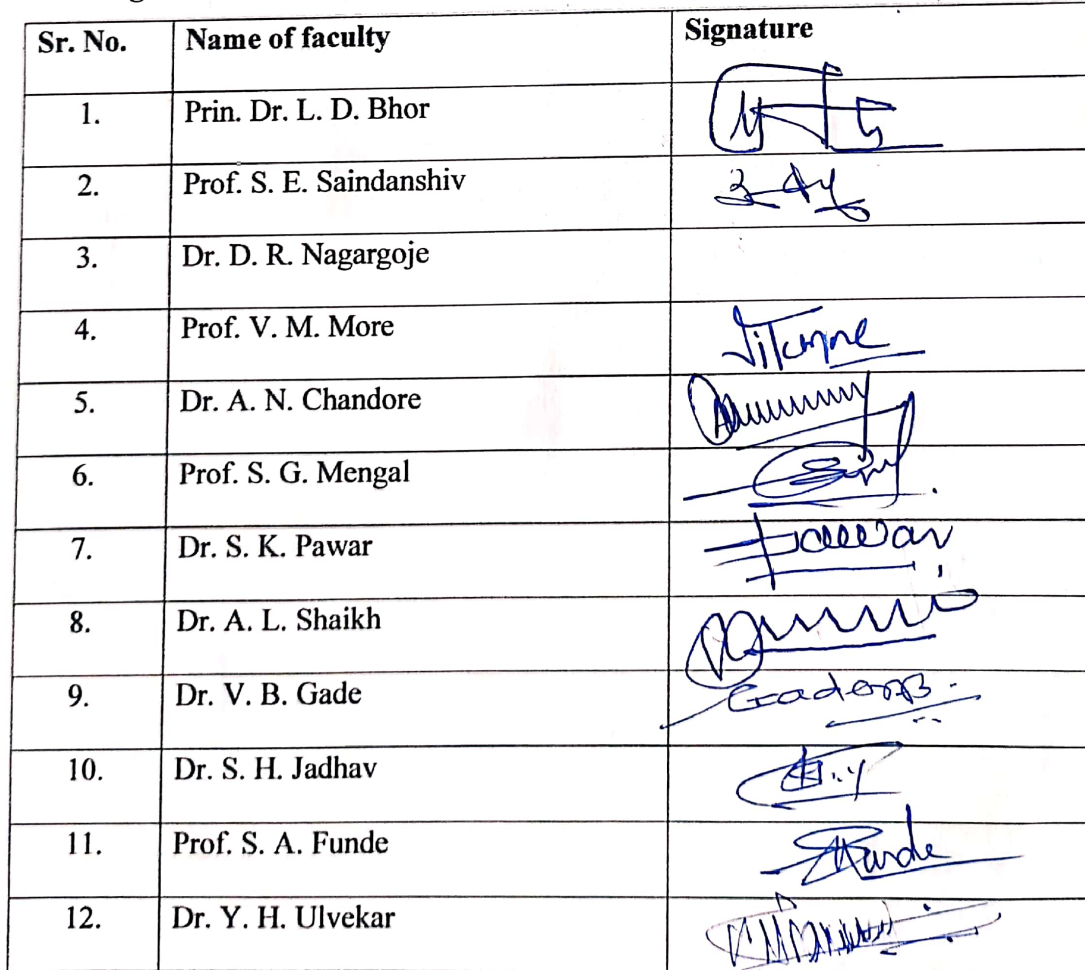 Sr. No. Name of faculty Signature
1. Prin. Dr. L. D. Bhor
2. Prof. S. E. Saindanshiv
3. Dr. D. R. Nagargoje
4. Prof. V. M. More
5. Dr. A. N. Chandore
6. Prof. S. G. Mengal
7. Dr. S. K. Pawar Pawar
8. Dr. A. L. Shaikh
9. Dr. V. B. Gade
10. Dr. S. H. Jadhav
11. Prof. S. A. Funde
12. Dr. Y. H. Ulvekar